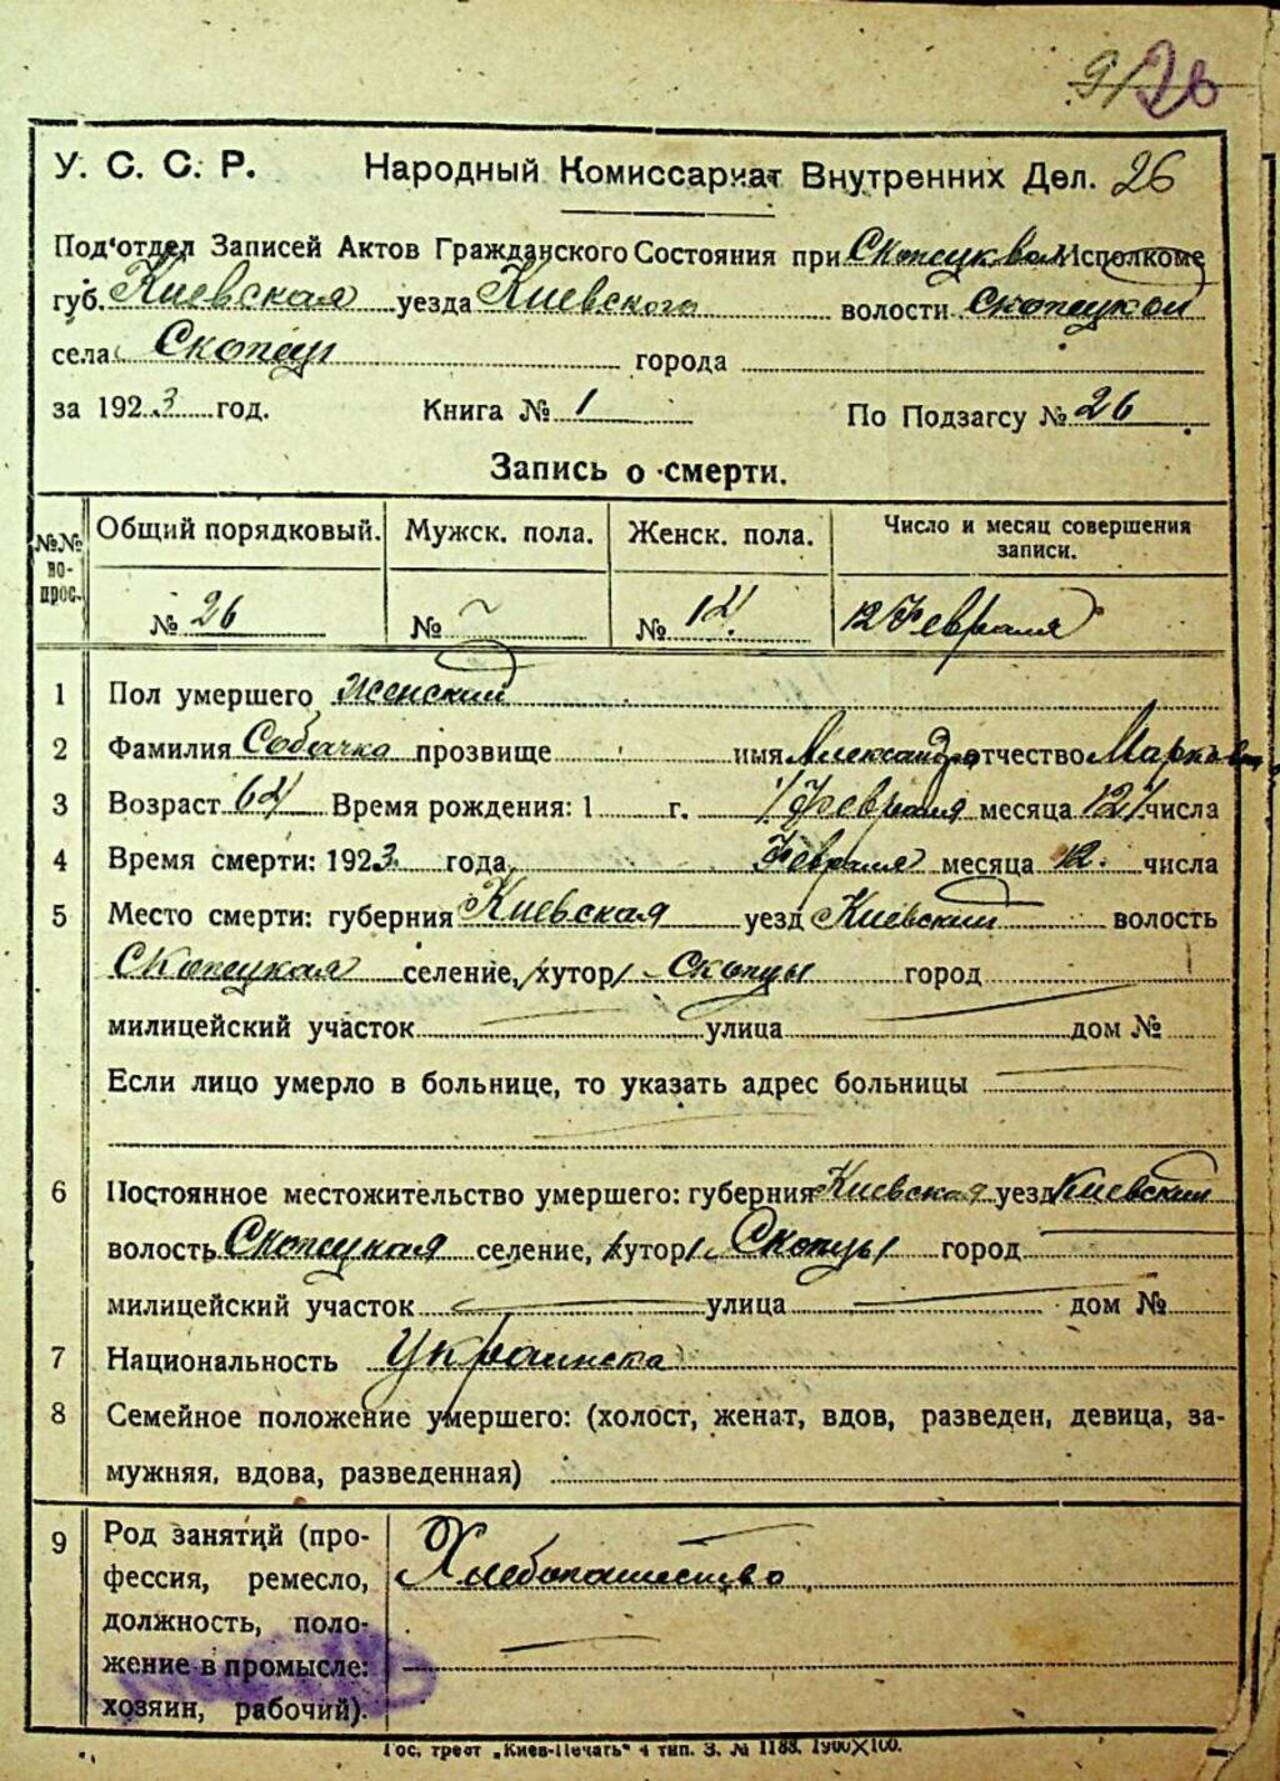 9/26
У. С. С. Р. Народный Комиссариат Внутренних Дел. 26
Под'отдел Записей Актов Гражданского Состояния при Скопецк. вол Исполкоме
губ. Киевская уезда Киевского волости Скопецкой
села Скопцы города
за 1923 год. Книга № 1 По Подзагсу № 26
Запись о смерти.
№№ вопрос. Общий порядковый. Мужск. пола. Женск. пола. Число и месяц совершения записи.
№ 26 № № 14 12 Февраля
1 Пол умершего Женский
2 Фамилия Собачко прозвище имя Александра отчество Марковна
3 Возраст 64 Время рождения: 1 г. Февраля месяца 12 числа
4 Время смерти: 1923 года Февраля месяца 12 числа
5 Место смерти: губерния Киевская уезд Киевский волость
Скопецкая селение, /хутор/ Скопцы город
милицейский участок улица дом №
Если лицо умерло в больнице, то указать адрес больницы
6 Постоянное местожительство умершего: губерния Киевская уезд Киевский
волость Скопецкая селение, /хутор/ Скопцы город
милицейский участок улица дом №
7 Национальность Украинска
8 Семейное положение умершего: (холост, женат, вдов, разведен, девица, за-
мужняя, вдова, разведенная)
9 Род занятий (про-
фессия, ремесло,
должность, поло-
жение в промысле:
хозяин, рабочий).
Хлебопашество
Гос. трест „Киев-Печать" 4 тип. З. № 1188. 1900X100.